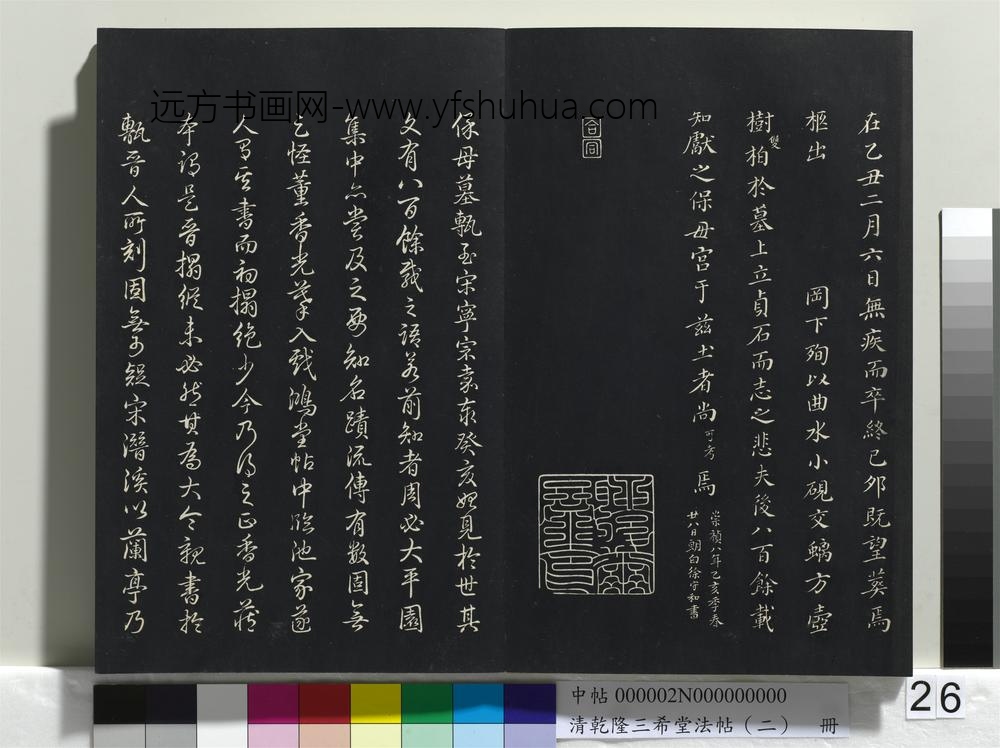 远方书画网-www.yfshuhua.com
在乙丑二月六日無疾而卒終已夘既望葬焉
柩出 岡下殉以曲水小硯交螭方壺
樹雙柏於墓上立貞石而志之悲夫後八百餘載
知獻之保母宫于茲土者尚可考焉
崇禎八年乙亥季春
廿八日朝白徐守和書
合同
保母墓甎至宋寧宗嘉泰癸亥始見於世其
文有八百餘載之語若前知者周必大平園
集中亦嘗及之要知名蹟流傳有數固無
足怪董香光摹入戲鴻堂帖中臨池家遂
人自書而初搨絶少今乃得之正香光藏
本謂是晉搨縱未必然其為大令親書於
甎晉人所刻固無可疑宋潛溪以蘭亭乃
中帖 000002N000000000
清乾隆三希堂法帖（二） 冊
26